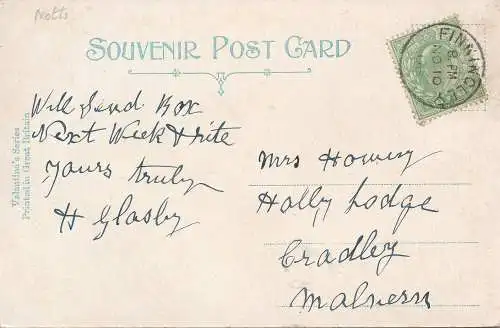 Notts
SOUVENIR POST CARD
FINNINGLEY
8 PM
NO 10
Will Send Box
Next Week & rite
Yours truly
H Glasby
Mrs Howery
Holly Lodge
Cradley
Malvern
Valentine's Series
Printed in Great Britain